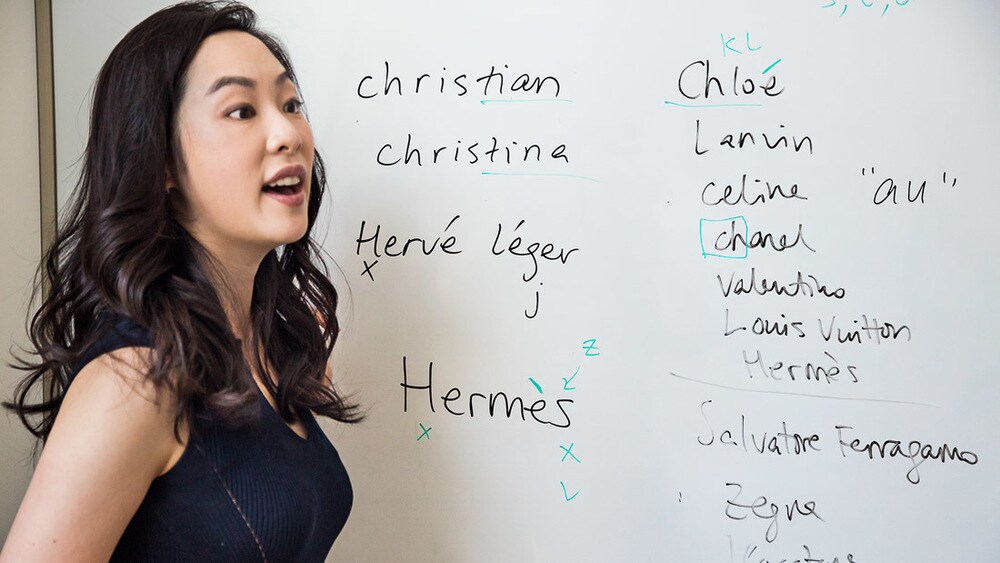 christian
christina
Hervé léger
x
j
z
Hermès
x
x
L
KL
Chloé
Lanvin
celine "au"
chanel
valentino
Louis Vuitton
Hermès
Salvatore Ferragamo
Zegna